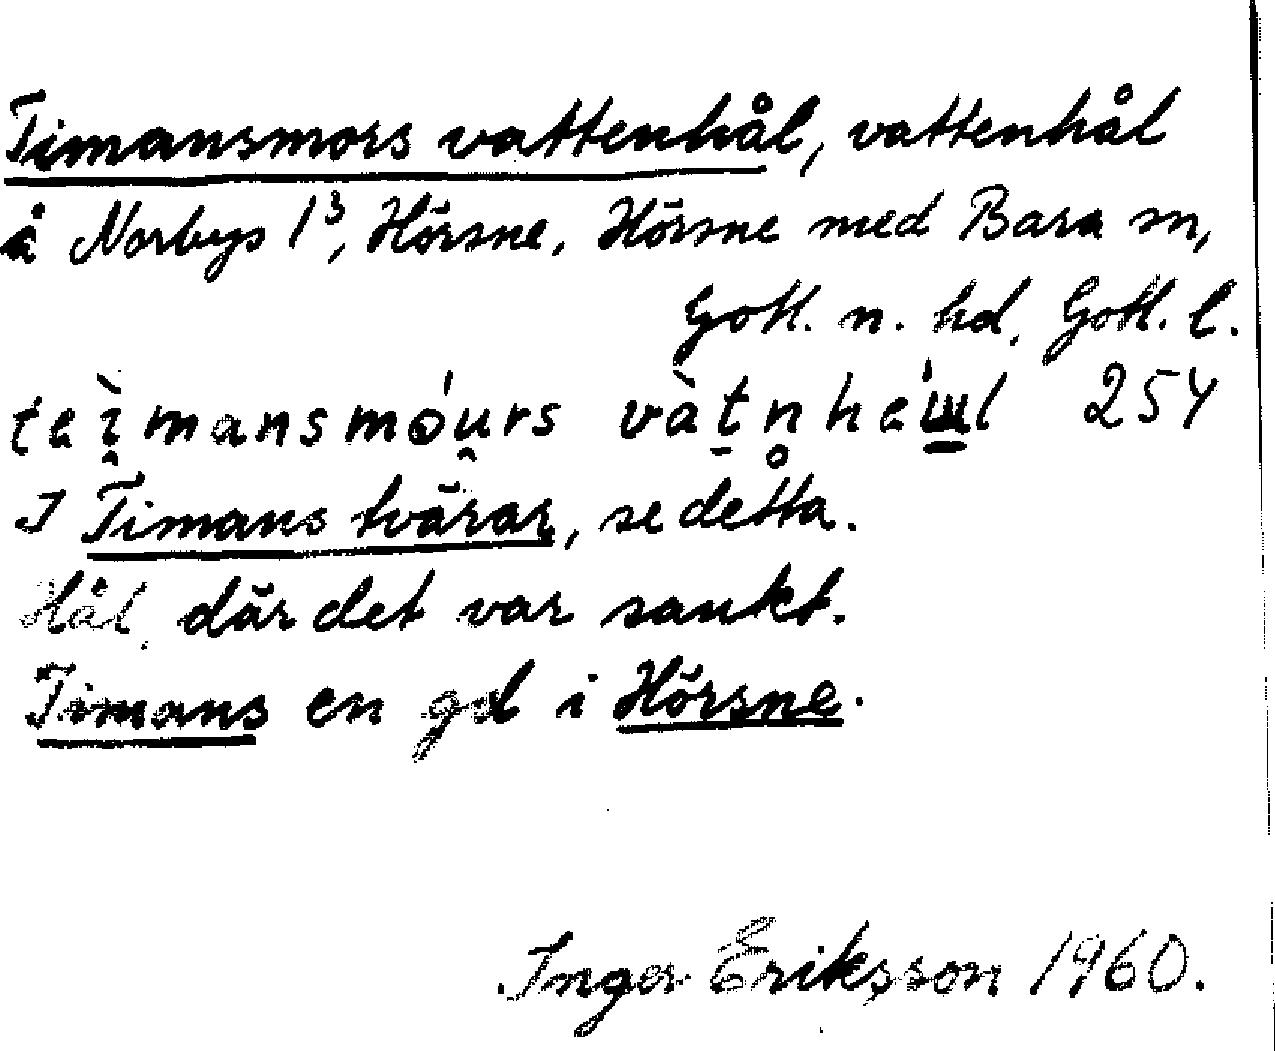 Timansmors vattenhål, vattenhål
å Norbys 1³, Hörsne, Hörsne med Bara sn,
Gotl. n. hd, Gotl. l.
254
I Timans tvärar, se detta.
Hål, där det var sankt.
Timans en gd i Hörsne.
Inger Eriksson 1960.